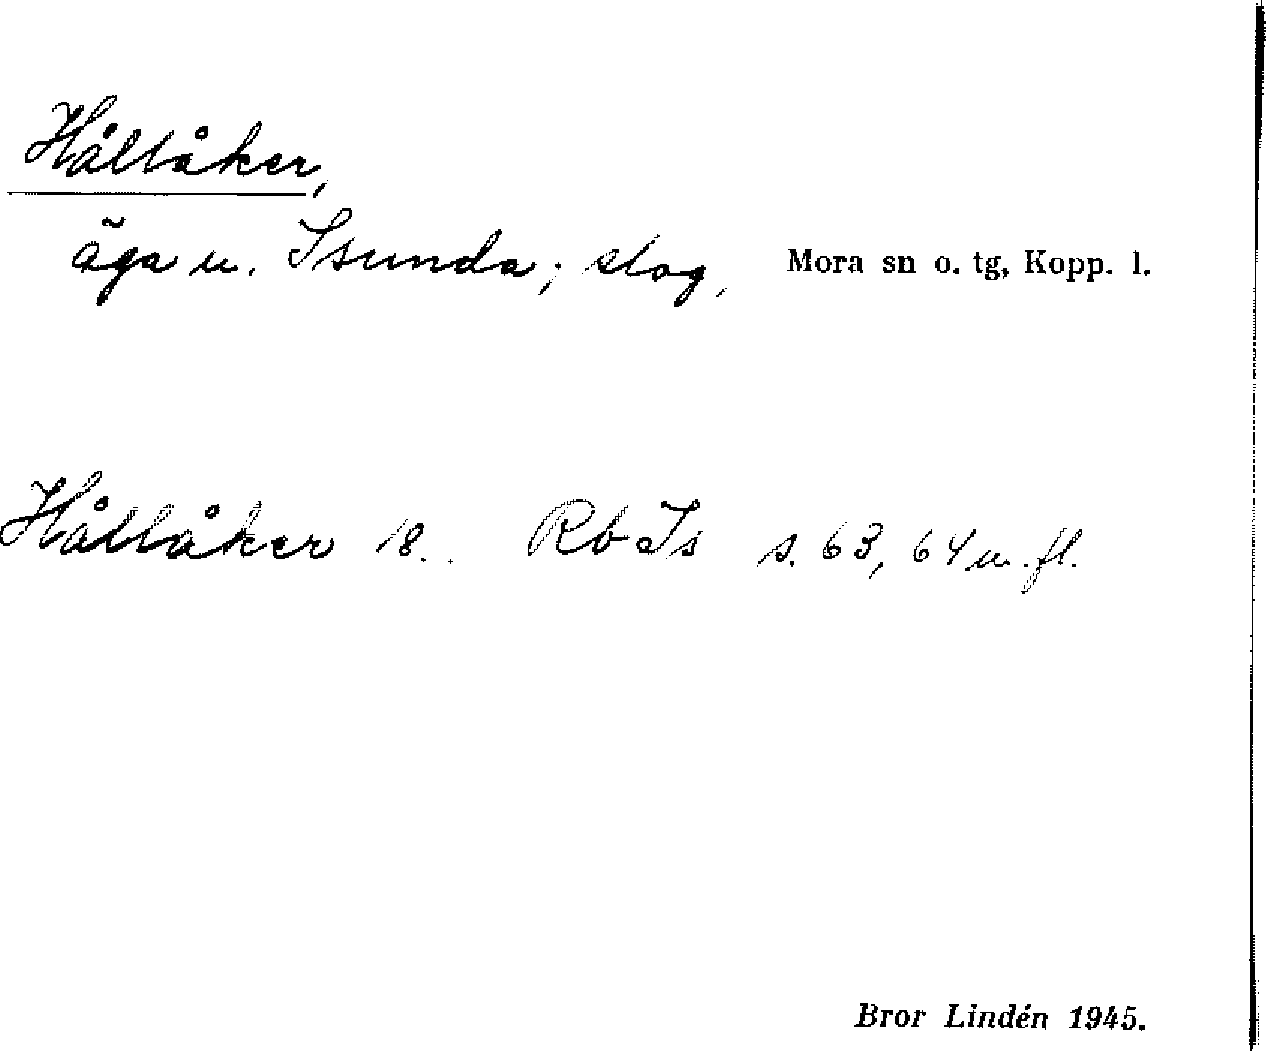 Hållåker,
äga u. Isunda; slog, Mora sn o. tg, Kopp. l.
Hållåker 18.. Rb Is s. 63, 64 m. fl.
Bror Lindén 1945.